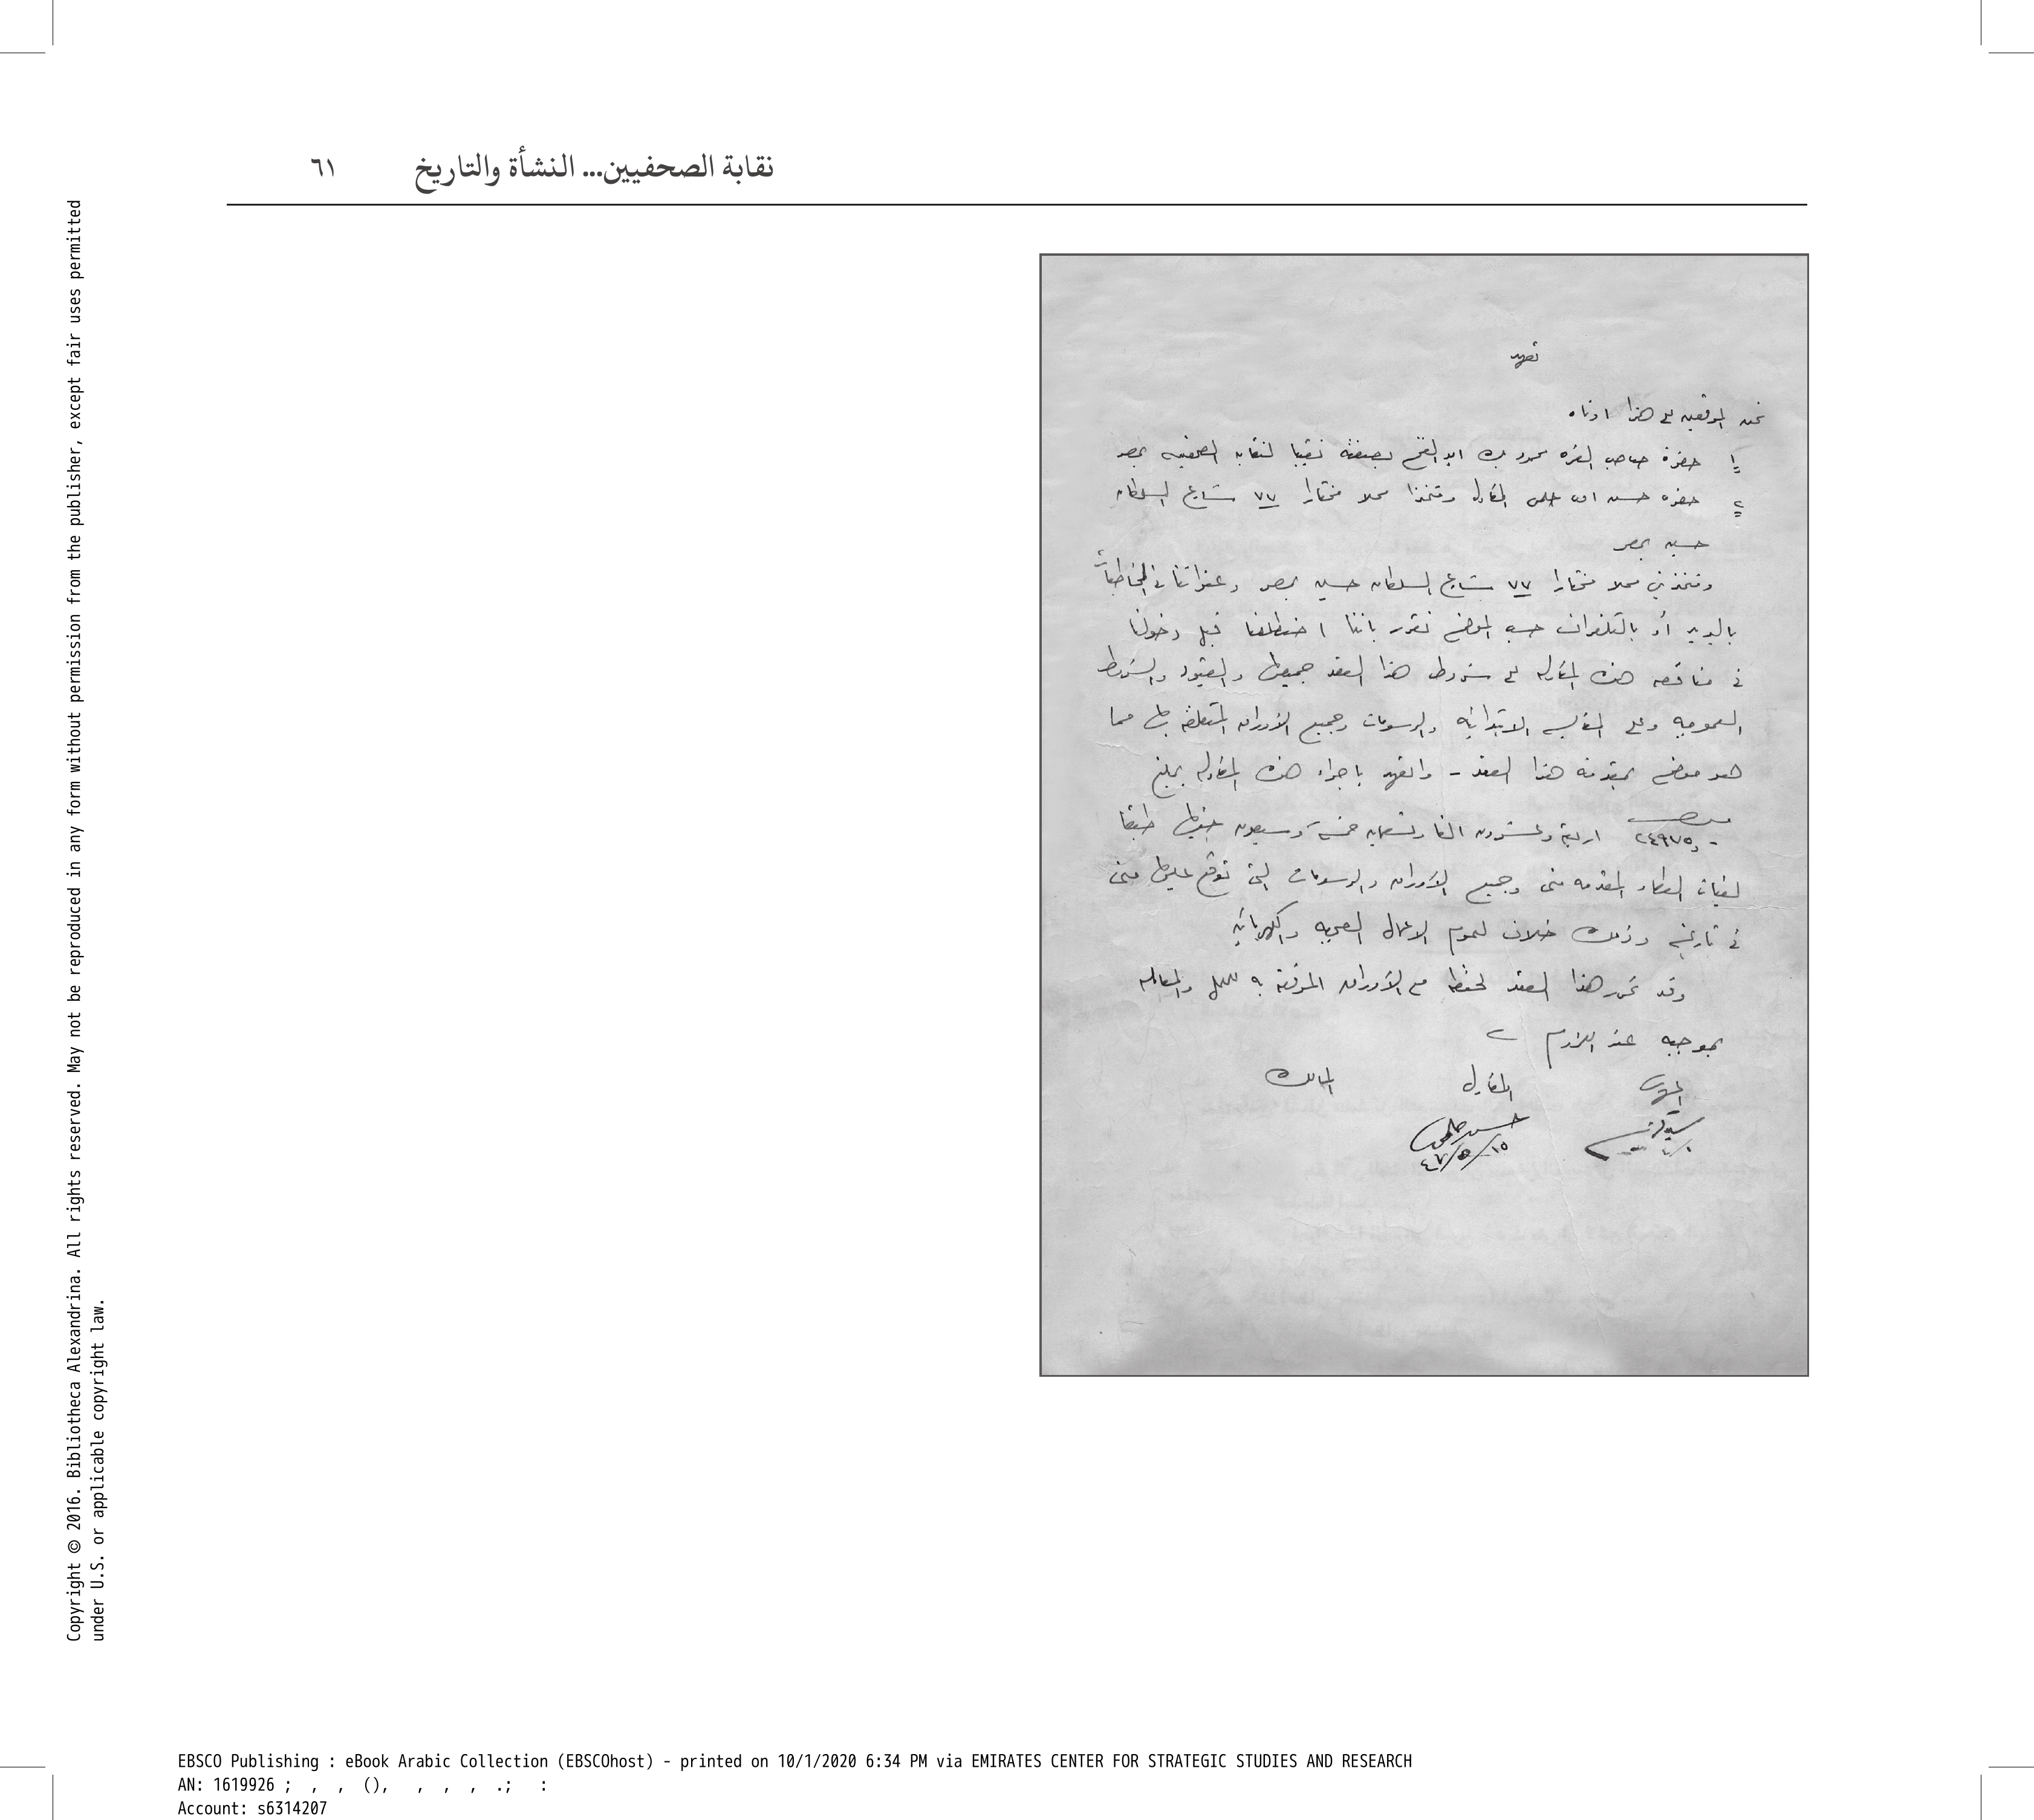 نقابة الصحفيين... النشأة والتاريخ ٦١
تعهد
نحن الموقعين على هذا ادناه
١ حضرة صاحب العزه محمود بك ابو الفتح بصفته نقيبا لنقابة الصحفيين بمصر
٢ حضره حسن حلمى المقاول ومتخذا محلا مختارا ٧٧ شارع السلطان
حسين بمصر
ومتخذين محلا مختارا ٧٧ شارع السلطان حسين بمصر وعنواننا فى المخاطبات
بالبريد أو بالتلغراف حسب الموضح نقرر باننا اضطلعنا قبل دخولنا
فى مناقصة هذه المقاوله على شروط هذا العقد جميعها والقيود والشروط
العموميه وعلى المقايسه الابتدائيه والرسومات وجميع الأوراق المتعلقه بها مما
هو موضح بمقدمة هذا العقد - واتعهد باجراء هذه المقاوله بمبلغ
٢٤٩٧٥ اربعة وعشرون الفا وتسعمايه خمسة وسبعون جنيها طبقا
لفئات العطاء المقدمه منى وجميع الأوراق والرسومات التى توقع عليها منى
فى تاريخه وذلك خلاف لعموم الاعمال الصحيه والكهربائيه
وقد تحرر هذا العقد لحفظه مع الأوراق الموقعه به للعمل والمعامله
بموجبه عند اللزوم
المقاول المالك
حسن حلمى
١٥/٥/٤٧
Copyright © 2016. Bibliotheca Alexandrina. All rights reserved. May not be reproduced in any form without permission from the publisher, except fair uses permitted
under U.S. or applicable copyright law.
EBSCO Publishing : eBook Arabic Collection (EBSCOhost) - printed on 10/1/2020 6:34 PM via EMIRATES CENTER FOR STRATEGIC STUDIES AND RESEARCH
AN: 1619926 ; , , (), , , , .; :
Account: s6314207